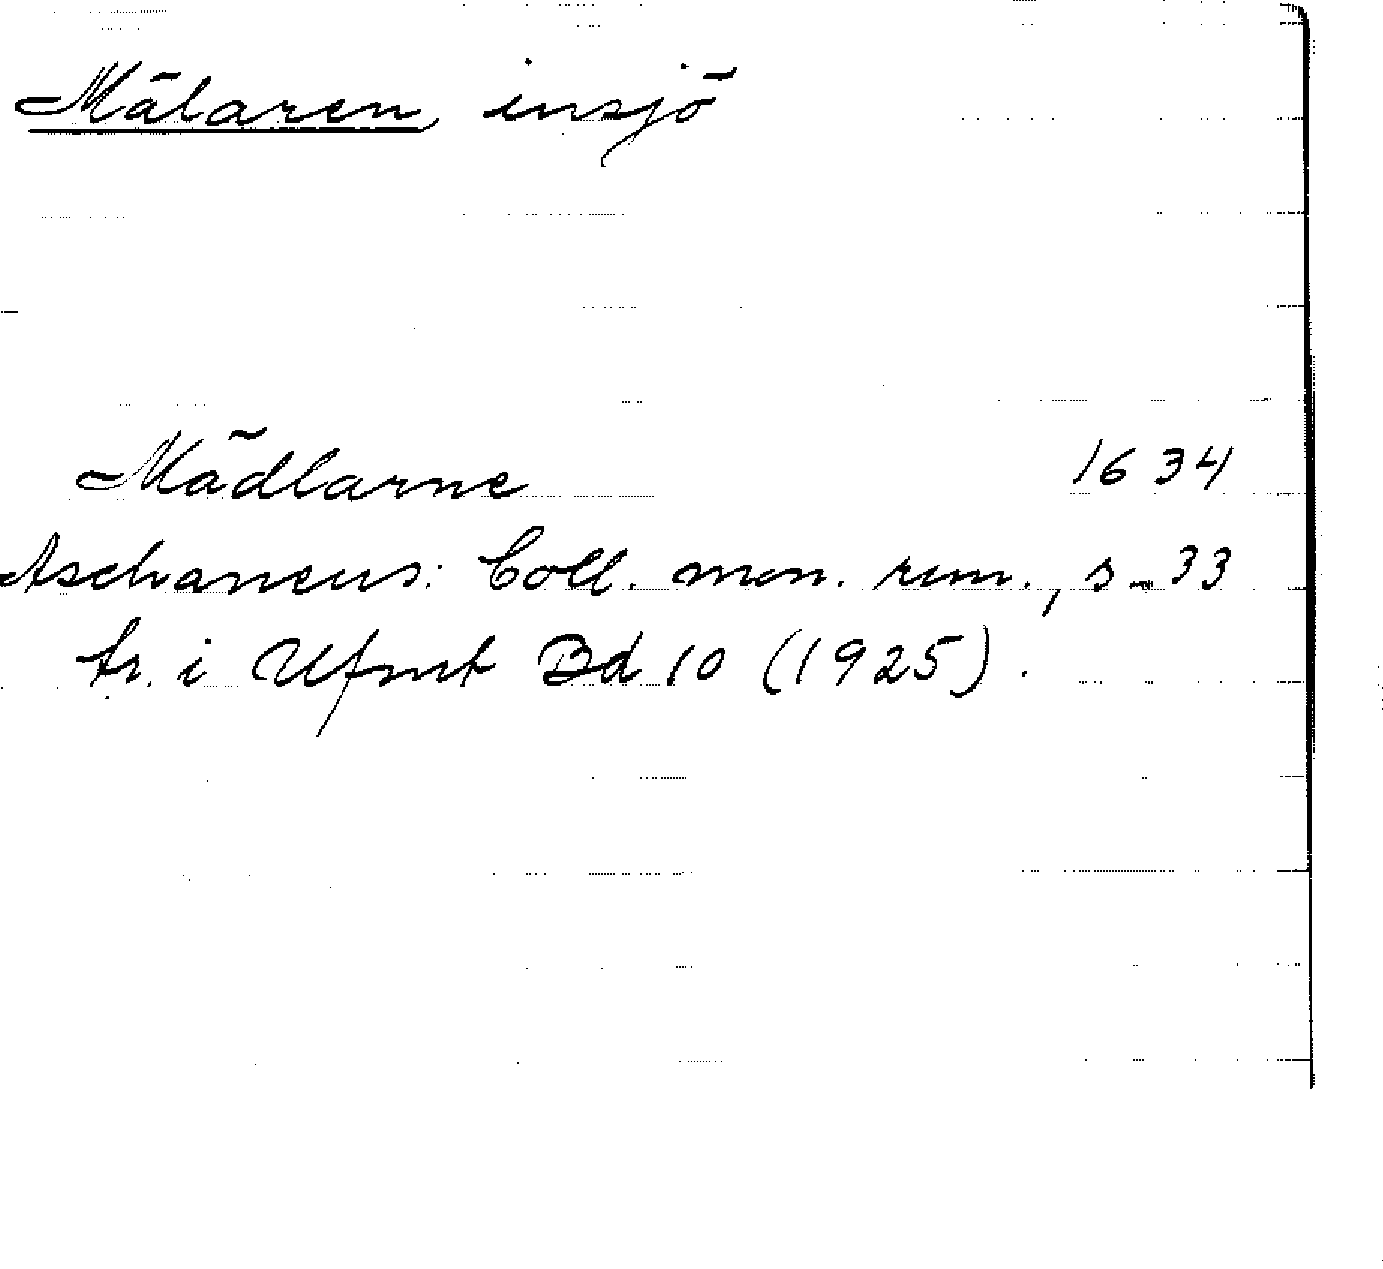 Mälaren, insjö
Mädlarne 1634
Aschaneus: Coll. mon. run., s. 33
tr. i Ufmt Bd 10 (1925).